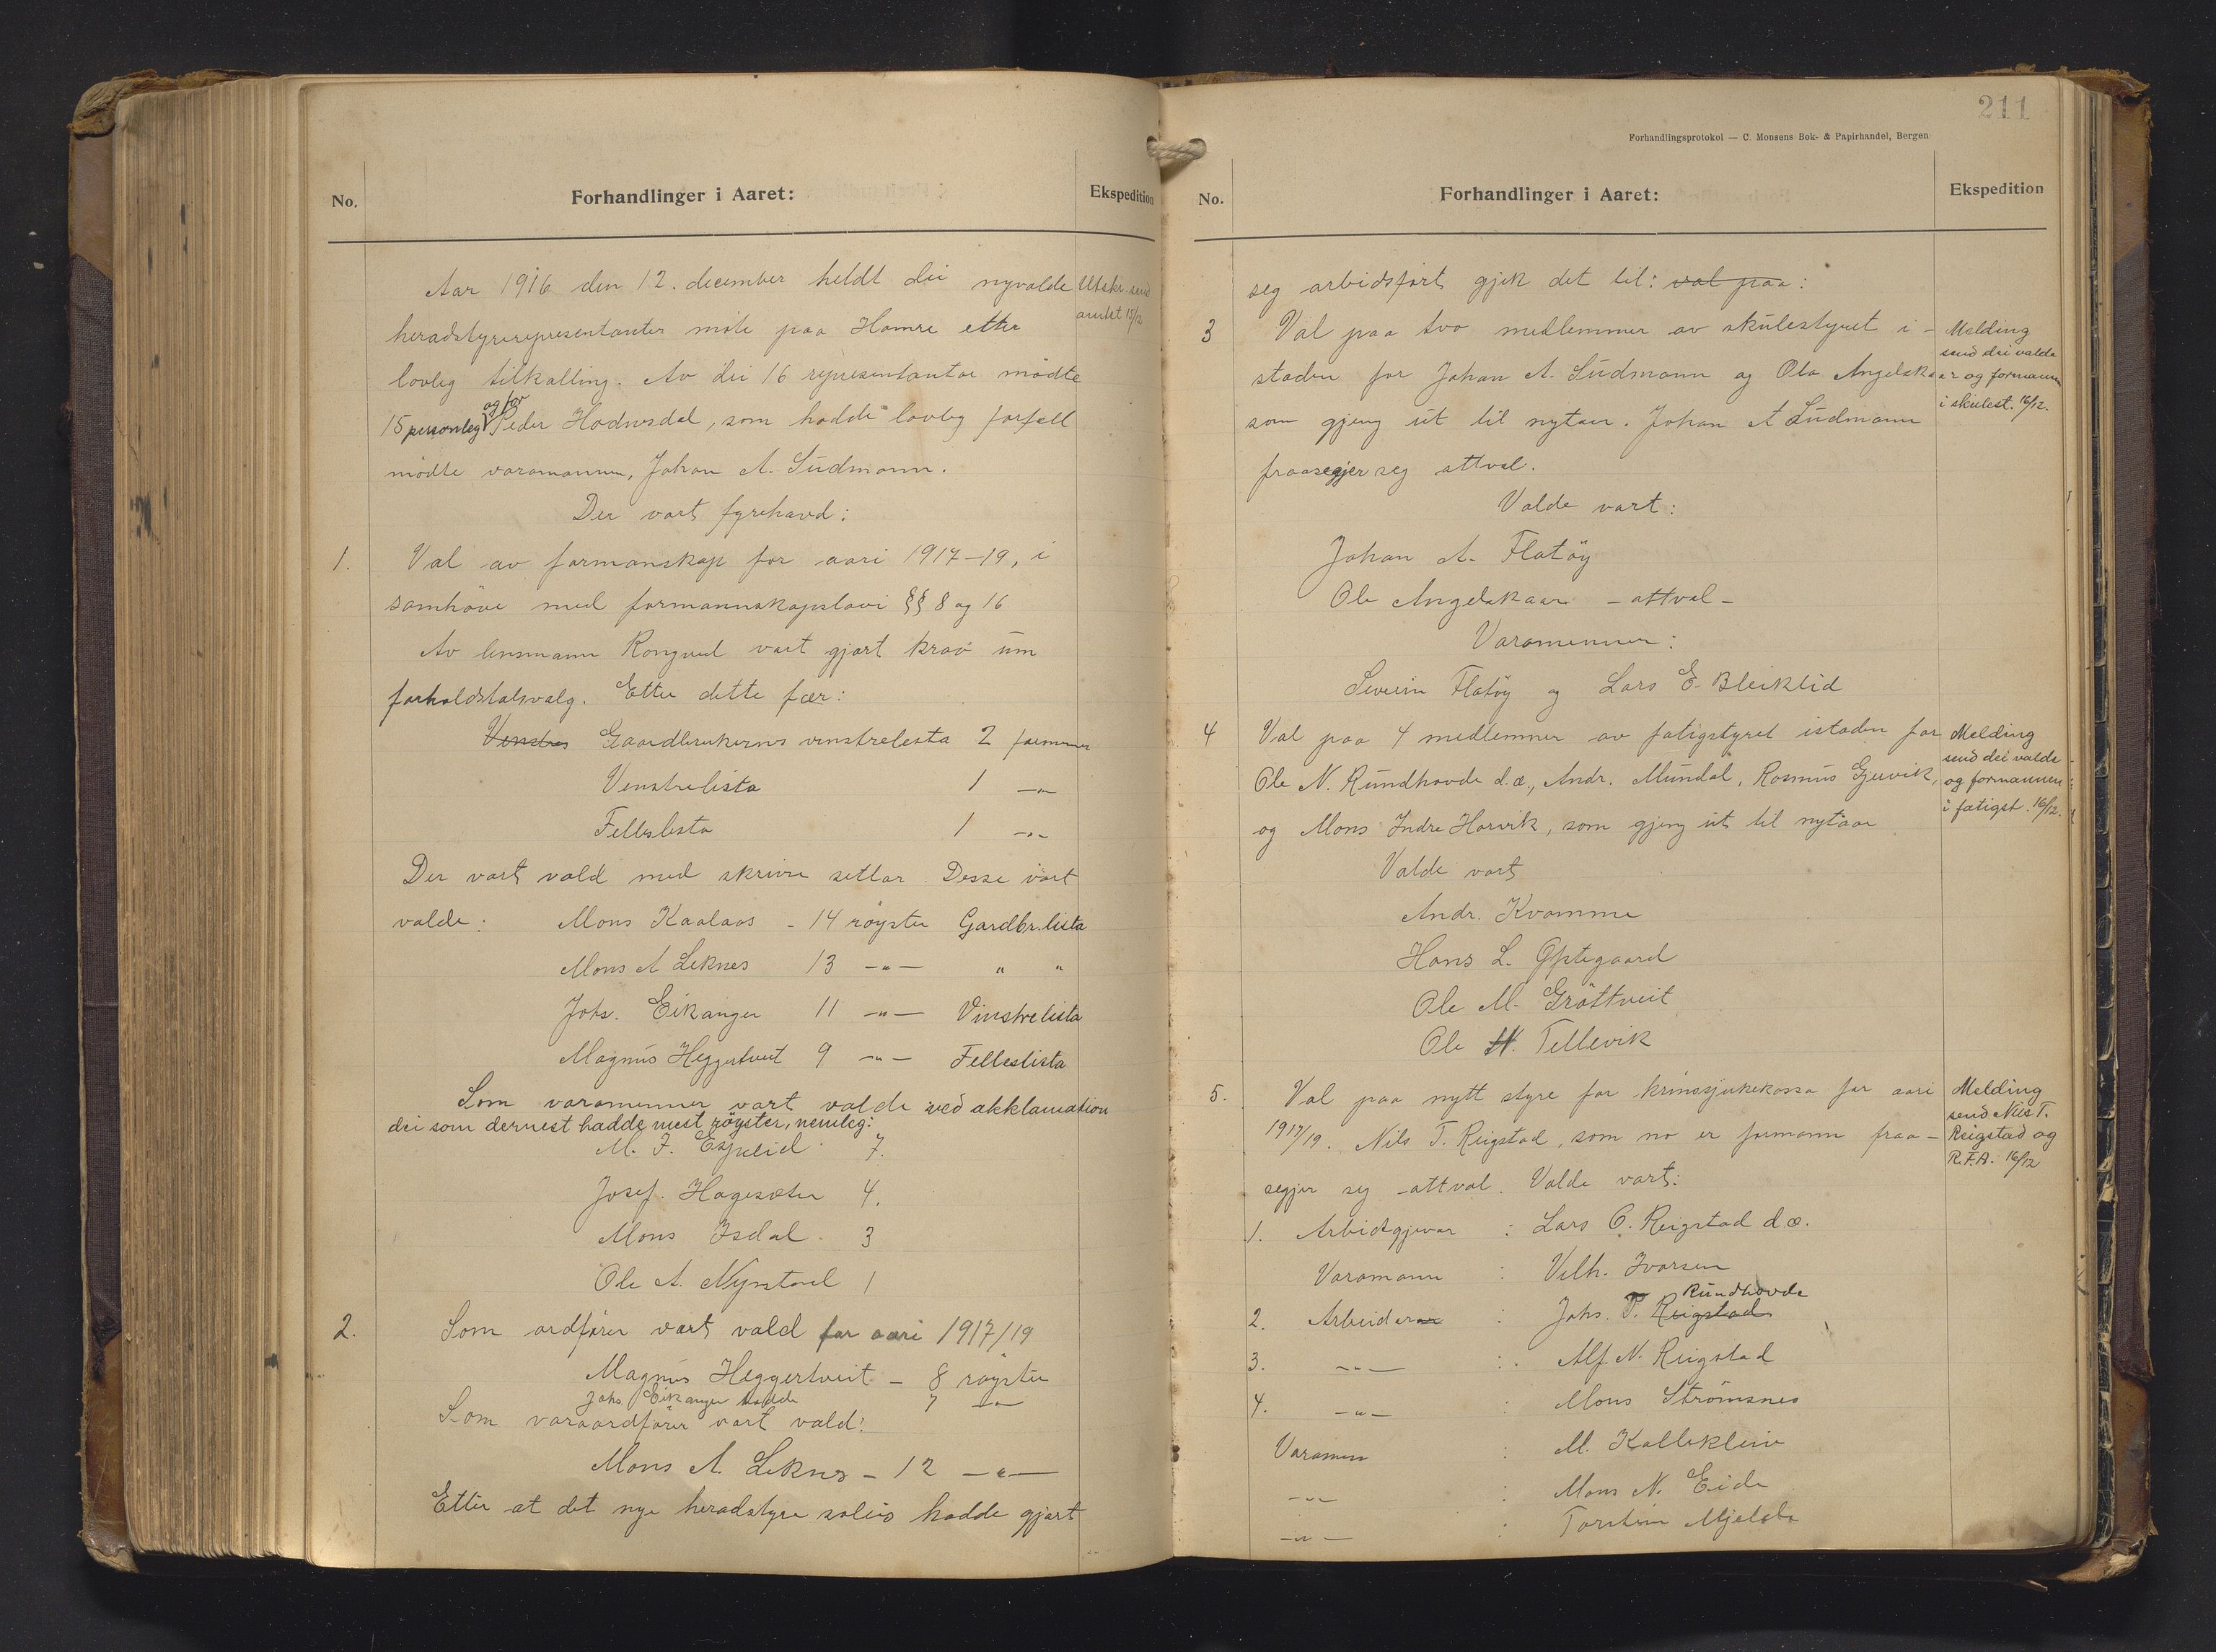 No.
Forhandlinger i Aaret:
Ekspedition
Aar 1916 den 12. december heldt dei nyvalde
Utskr. send
amtet 15/12
heradstyrerepresentanter möte paa Hamre etter
lovleg tilkalling. Av dei 16 representantar mødte
og for
15 personleg Peder Hodnesdal, som hadde lovleg forfall
mödte varamannen, Johan A. Südmann.
Der vart fyrehavd:
1. Val av formanskap for aari 1917-19, i
samhöve med formannskapslovi §§ 8 og 16
Av lensmann Rongved vart gjort krav um
forholdstalsvalg. Etter dette fær:
Venstres Gaardbrukernes venstrelesta 2 formenn
Venstrelista 1 —"—
Felleslista 1 —"—
Der vart vald med skrivne setlar. Desse vart
valde: Mons Kaalaas - 14 röyster Gardbr.lista
Mons A Leknes 13 —"— " "
Johs. Eikanger 11 —"— Vinstrelista
Magnus Heggertveit 9 —"— Felleslista
Som varamenner vart valde ved akklamation
dei som dernest hadde mest röyster, nemleg:
M. J. Espelid 7.
Josef. Hagesæter 4.
Mons Isdal. 3
Ole A. Nyvstøl 1
2. Som ordfører vart vald for aari 1917/19
Magnus Heggertveit - 8 røyster
Johs Eikanger hadde 7 —"—
Som varaordförer vart vald:
Mons A. Leknes - 12 —"—
Etter at det nye heradstyre soleis hadde gjort
211
Forhandlingsprotokol — C. Monsens Bok- & Papirhandel, Bergen
No.
Forhandlinger i Aaret:
Ekspedition
seg arbidsført gjek det til: val paa:
3 Val paa tvo medlemmer av skulestyret i-
Melding
send dei valde
staden for Johan A. Südmann og Ola Angelskaar
og formannen
i skulest. 16/12.
som gjeng ut til nytaar. Johan A Südmann
fraasegjer seg attval.
Valde vart:
Johan A. Flatöy
Ole Angelskaar - attval -
Varamenner:
Severin Flatöy og Lars E. Bleiklid
4 Val paa 4 medlemner av fatigstyret istaden for
Melding
send dei valde
Ole N. Rundhovde d.æ., Andr. Mundal, Rasmus Gjervik,
og formannen
i fatigst. 16/12.
og Mons Indre Horvik, som gjeng ut til nytaar
Valde vart
Andr. Kvamme
Hans L. Øptegaard
Ole M. Gröttveit
Ole H. Tellevik
5. Val paa nytt styre for krinssjukekassa for aari
Melding
send Nils T.
1917/19. Nils T. Reigstad, som no er formann fraa-
Reigstad og
R.F.A. 16/12
segjer seg attval. Valde vart:
1. Arbeidsgjevar : Lars O. Reigstad d.æ.
Varamann : Vilh. Ivarsen
Rundhovde
2. Arbeidarar : Johs. P. Reigstad
3. —"— : Alf N. Reigstad
4. —"— : Mons Strömsnes
Varamenn : M. Kalleklein
—"— : Mons N. Eide
—"— : Torstein Mjelde